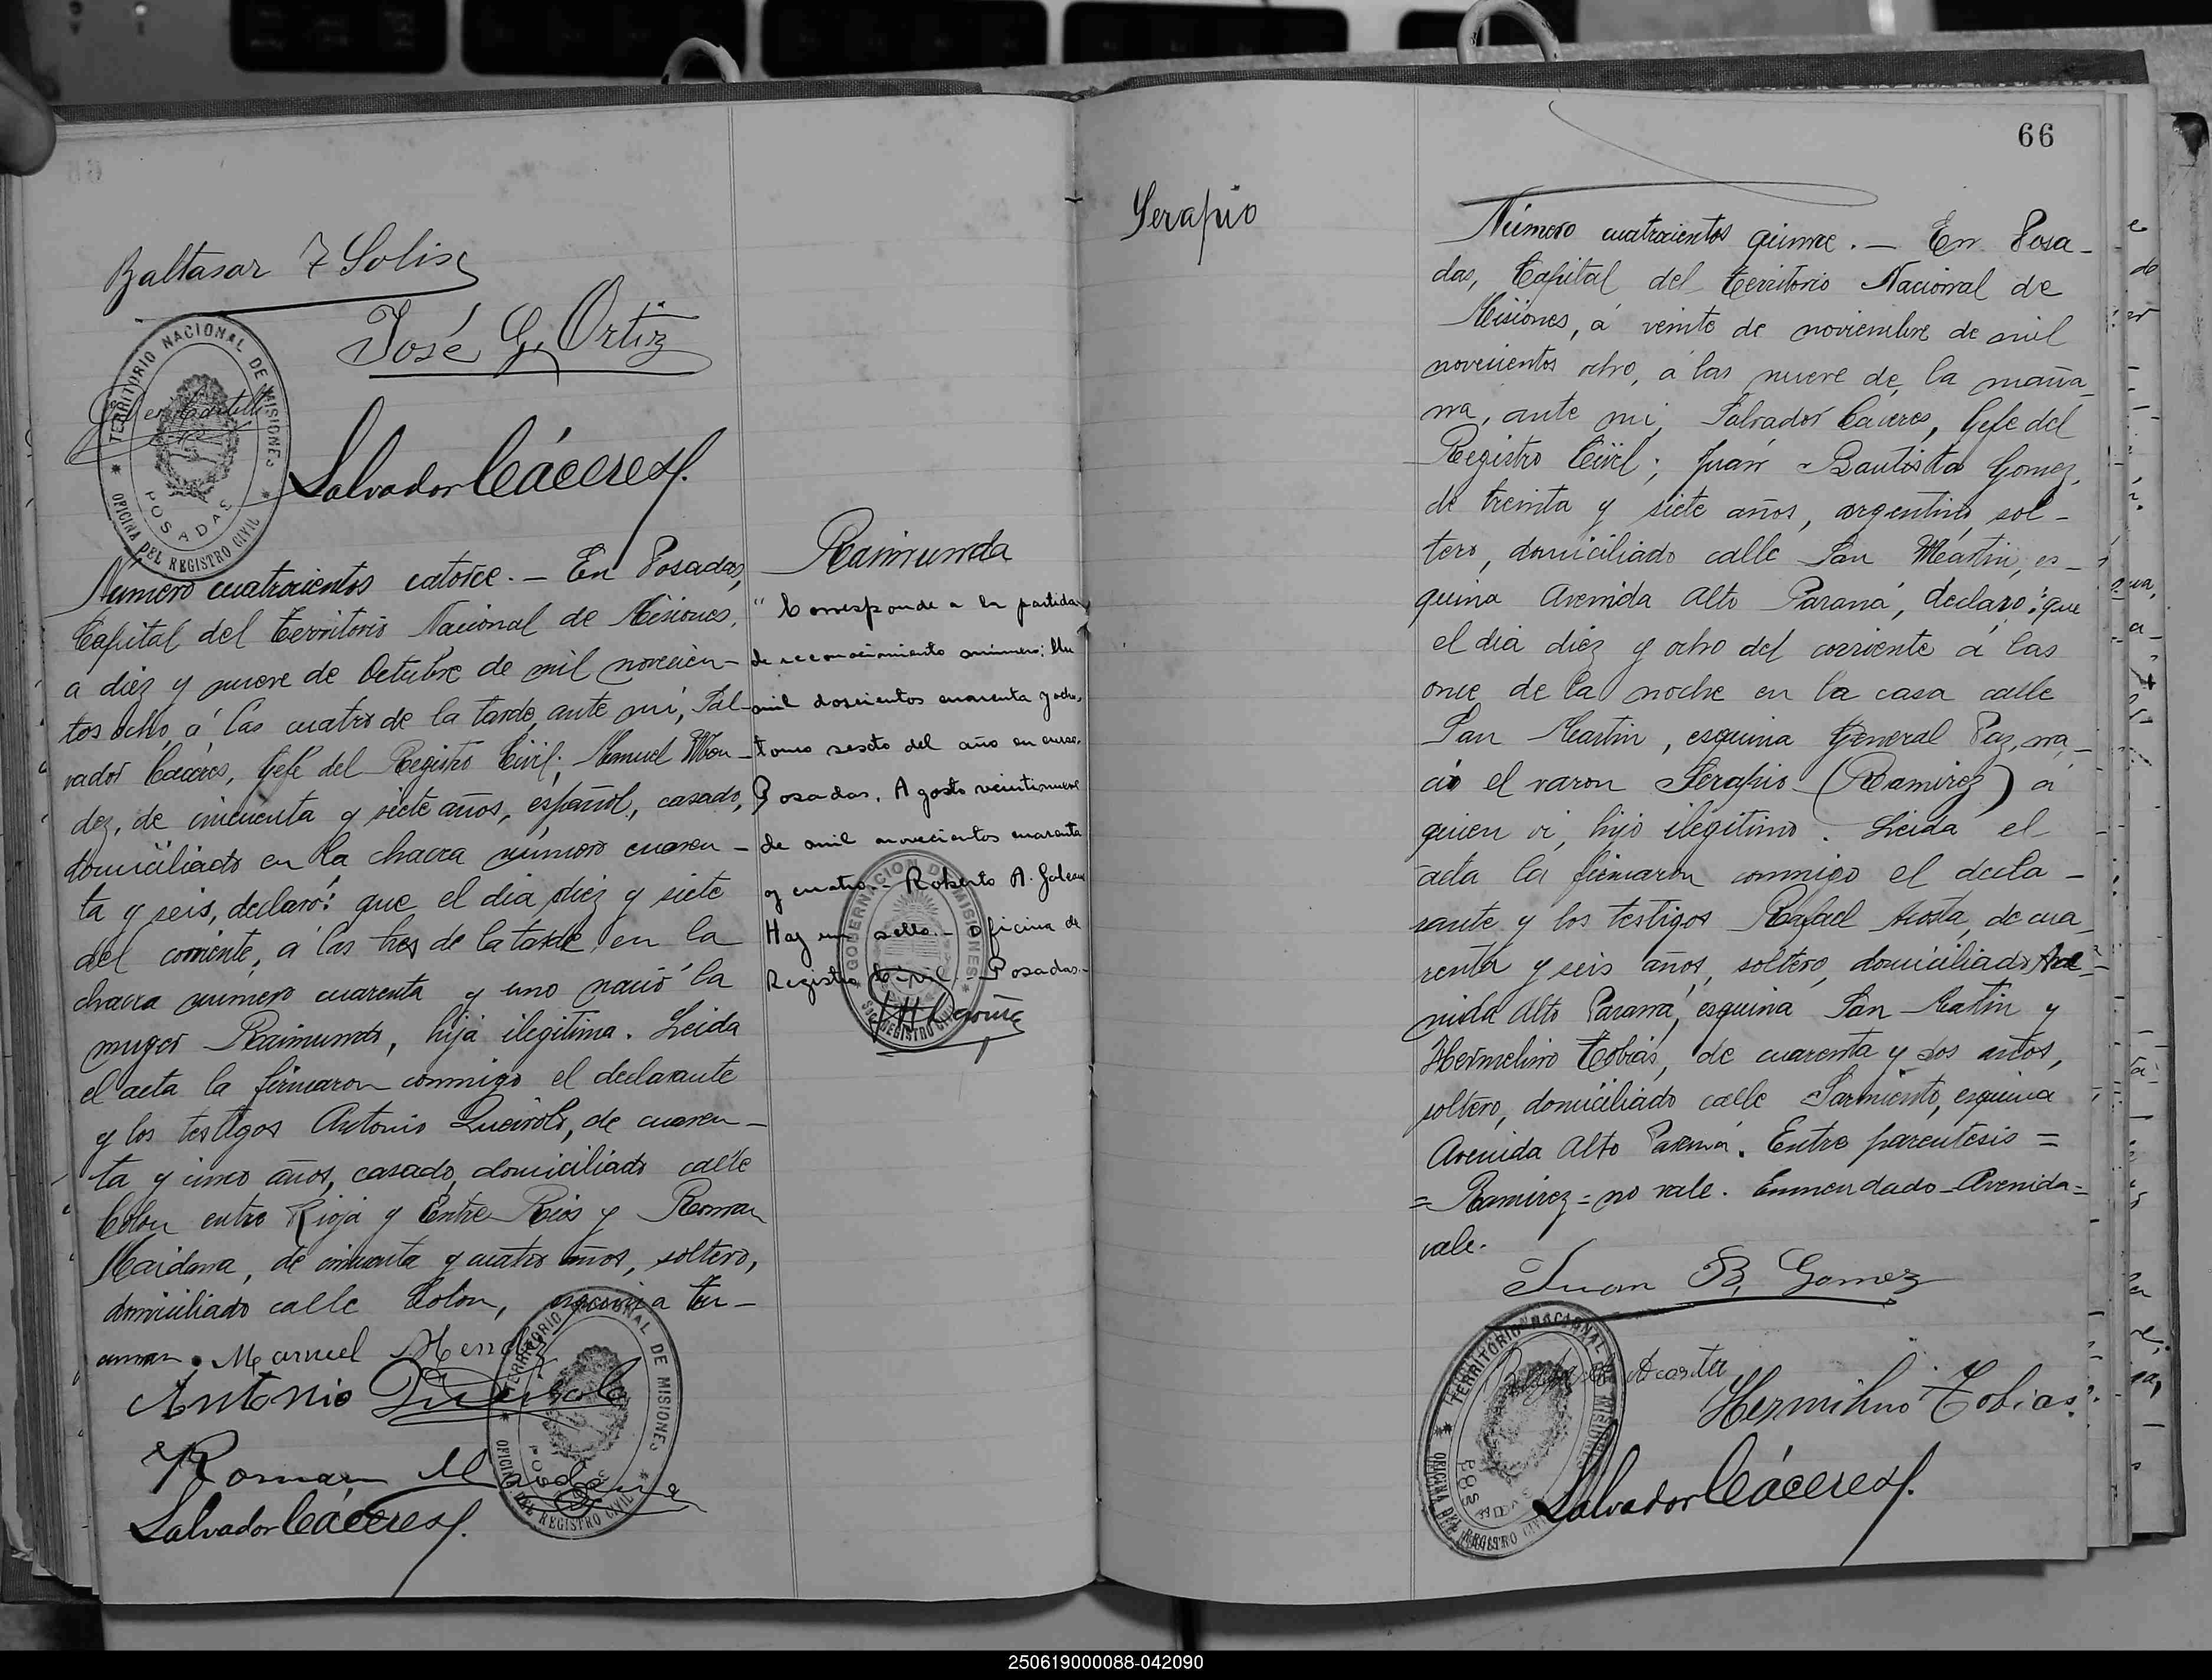 Baltasar F Solis
José G. Ortiz
TERRITORIO NACIONAL DE MISIONES
POSADAS
OFICINA DEL REGISTRO CIVIL
Salvador Cáceres f.
Número cuatrocientos catorce.- En Posadas,
Capital del Territorio Nacional de Misiones,
a diez y nueve de Octubre de mil novecien-
tos ocho, á las cuatro de la tarde, ante mí, Sal-
vador Cáceres, Gefe del Registro Civil; Manuel Men-
dez, de cincuenta y siete años, español, casado,
domiciliado en la chacra número cuaren-
ta y seis, declaró: que el dia diez y siete
del corriente, á las tres de la tarde en la
chacra número cuarenta y uno nació la
muger Raimunda, hija ilegitima. Leida
el acta la firmaron conmigo el declarante
y los testigos Antonio Queirolo, de cuaren-
ta y cinco años, casado, domiciliado calle
Colon entre Rioja y Entre Rios y Roman
Maidana, de cincuenta y cuatro años, soltero,
domiciliado calle Colon, esquina Tu-
cuman. Manuel Mendez
Antonio Queirolo
Roman Maidana
Salvador Cáceres f.
TERRITORIO NACIONAL DE MISIONES
POSADAS
OFICINA DEL REGISTRO CIVIL
Raimunda
"Corresponde a la partida
de reconocimiento número: Un
mil doscientos cuarenta y ocho,
tomo sexto del año en curso.
Posadas, Agosto veintinueve
de mil novecientos cuarenta
y cuatro.- Roberto A. Galeano
Hay un sello.- Oficina de
Registro Civil.- Posadas.-
GOBERNACION DE MISIONES
REGISTRO CIVIL
66
Serapio
Número cuatrocientos quince.- En Posa-
das, Capital del Territorio Nacional de
Misiones, á veinte de noviembre de mil
novecientos ocho, á las nueve de la maña-
na, ante mi, Salvador Cáceres, Gefe del
Registro Civil; Juan Bautista Gomez,
de treinta y siete años, argentino, sol-
tero, domiciliado calle San Martin, es-
quina Avenida Alto Paraná, declaró: que
el dia diez y ocho del corriente á las
once de la noche en la casa calle
San Martin, esquina General Paz, na-
ció el varon Serapio (Ramirez) á
quien vi, hijo ilegitimo. Leida el
acta la firmaron conmigo el decla-
rante y los testigos Rafael Acosta, de cua-
renta y seis años, soltero, domiciliado Ave-
nida Alto Paraná, esquina San Martin y
Hermelino Tobias, de cuarenta y dos años,
soltero, domiciliado calle Sarmiento, esquina
Avenida Alto Paraná. Entre parentesis =
= Ramirez = no vale. Enmendado-Avenida=
vale.
Juan B. Gomez
Rafael Acosta
Hermilino Tobias
TERRITORIO NACIONAL DE MISIONES
POSADAS
OFICINA DEL REGISTRO CIVIL
Salvador Cáceres f.
250619000088-042090